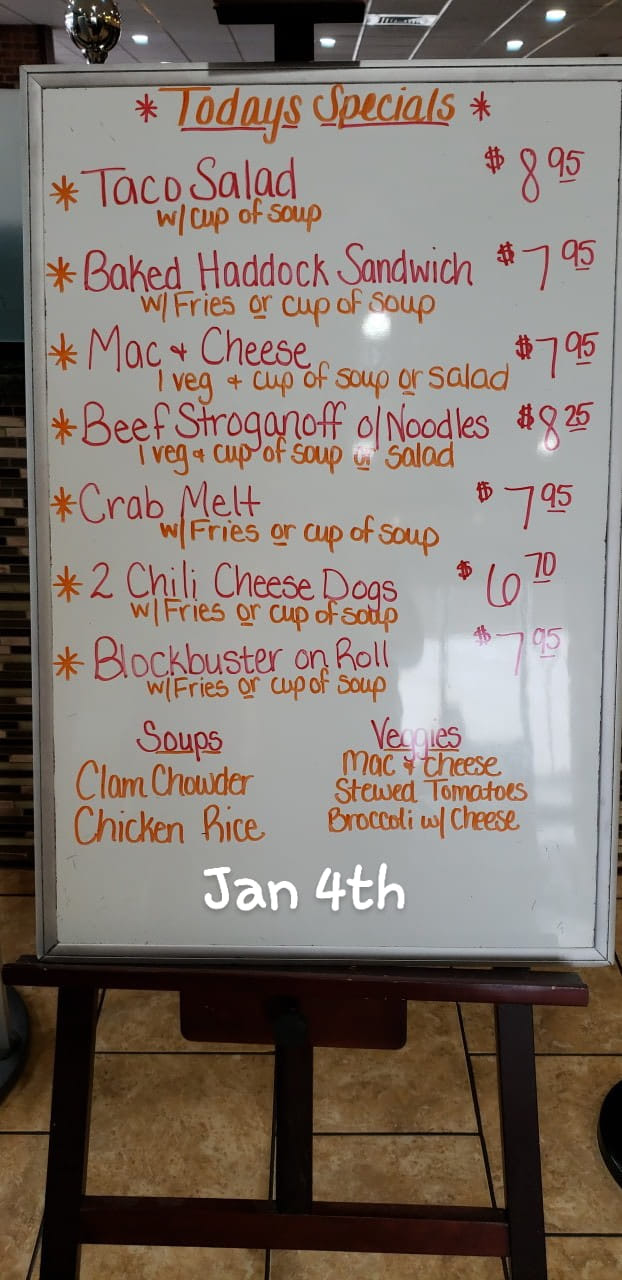 * Todays Specials *
* Taco Salad $ 8 95
w/ cup of soup
* Baked Haddock Sandwich $ 7 95
w/ Fries or cup of soup
* Mac & Cheese $ 7 95
1 veg & cup of soup or salad
* Beef Stroganoff o/ Noodles $ 8 25
1 veg & cup of soup or salad
* Crab Melt $ 7 95
w/ Fries or cup of soup
* 2 Chili Cheese Dogs $ 6 70
w/ Fries or cup of soup
* Blockbuster on Roll $ 7 95
w/ Fries or cup of soup
Soups
Clam Chowder
Chicken Rice
Veggies
Mac & Cheese
Stewed Tomatoes
Broccoli w/ Cheese
Jan 4th